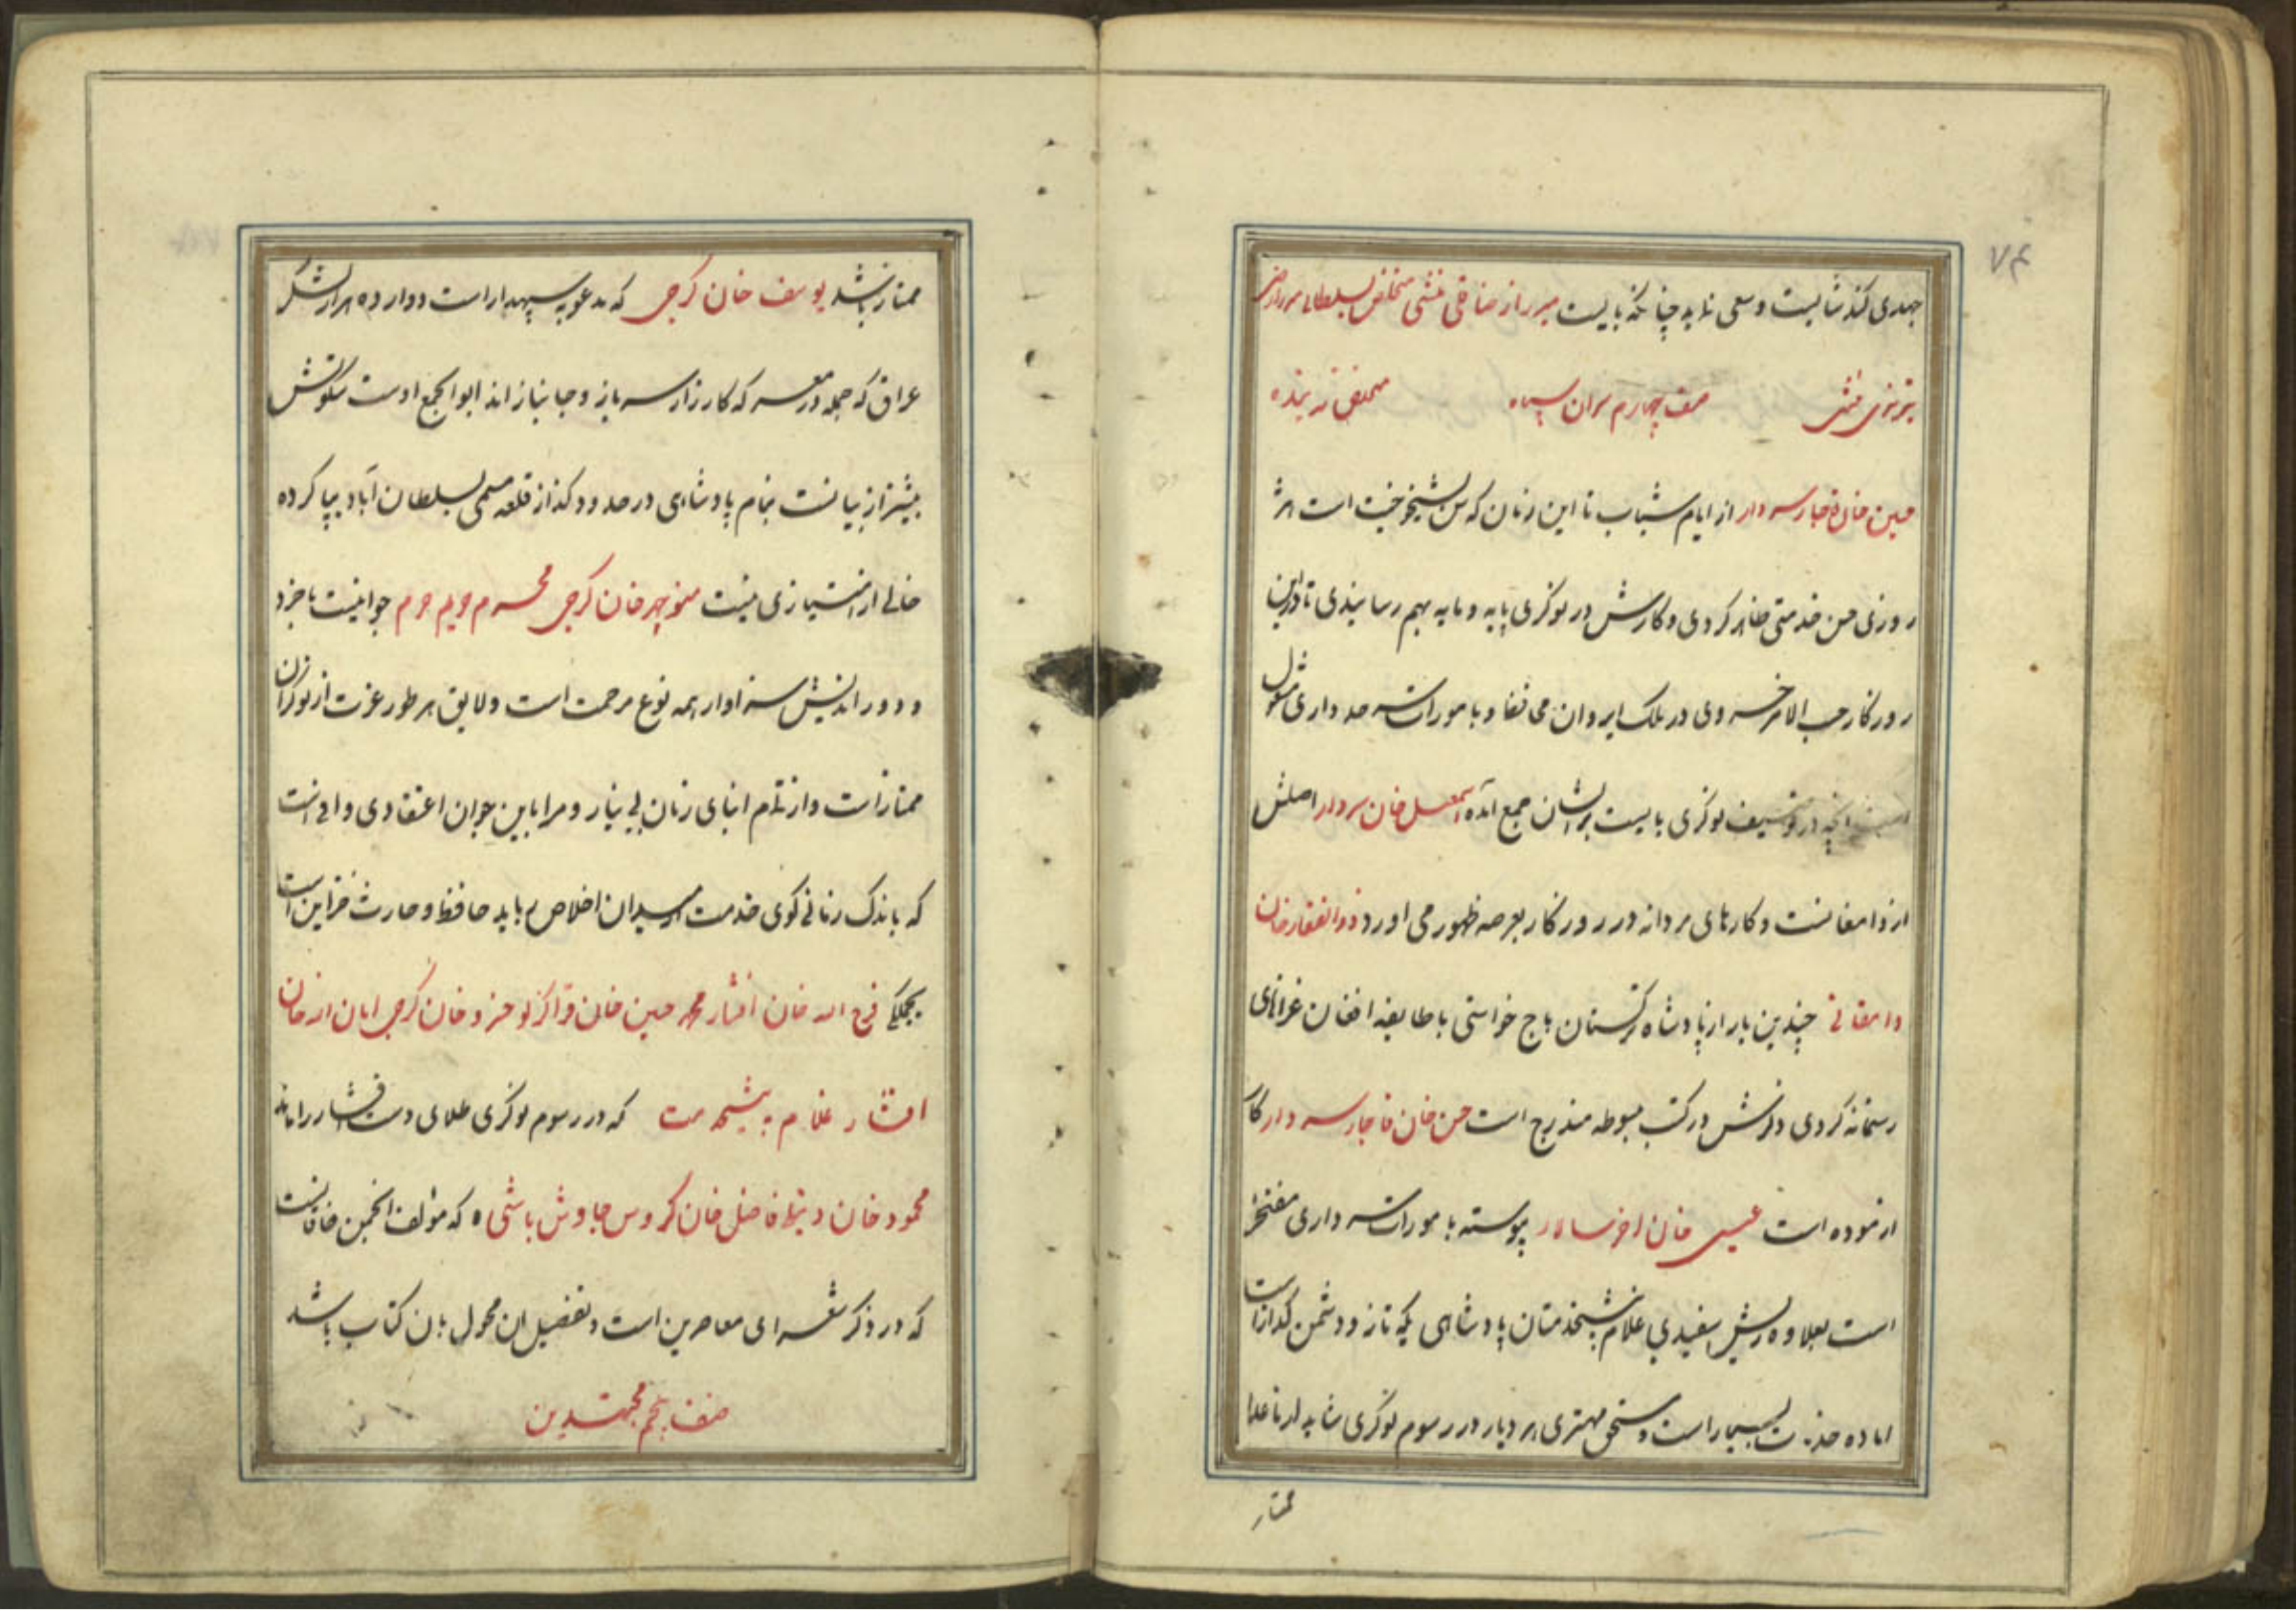 ۷۴
جهدی کند شایست و سعی نماید چنانکه بایست میرزا رضا قلی منشی متخلص بسلطانی میرزا رضی
تبریزی منشی صف چهارم سران سپاه
حسین خان قاجار سردار از ایام شباب تا این زمان که سن شیخوخیت است هر
روزی حسن خدمتی ظاهر کردی و کارش در نوکری پایه و مایه بهم رسانیدی تا در این
روزگار حسب الامر خسروی در ملک ایروان می نفاد و بامورات سرحد داری مشغول
است آنچه در توصیف نوکری بایست بر ایشان جمع آمده اسمعیل خان سردار اصلش
از دامغانست و کارهای مردانه در روزگار بعرصه ظهور می اورد ذوالفقار خان
دامغانی چندین بار از پادشاه ترکستان باج خواستی با طایفه افغان غزاهای
رستمانه کردی ذکرش در کتب مبسوطه مندرج است حسن خان قاجار سردار کار
ازموده است عیسی خان پیوسته بامورات سرداری مفتخر
است بعلاوه ریش سفیدی غلام پیشخدمتان پادشاهی یکه تاز و دشمن گداز است
اماده خدمت بسیار است و مستحق مهتری هر دیار در رسوم نوکری شاید از ما عدا
ممتاز
ممتاز باشد یوسف خان گرجی که مدعو به سپهدار است دوازده هزار لشگر
عراق که جمله در معرکه کارزار سرباز و جانبازاند ابوابجمع اوست نیکوئیش
بیشتر از بیانست بنام پادشاهی در حدود کزاز قلعه مسمی بسلطان آباد بپا کرده
خالی از امتیازی نیست منوچهر خان گرجی محرم حریم حرم جوانیست باخرد
و دوراندیش سزاوار همه نوع مرحمت است و لایق هر طور عزت از نوکران
ممتاز است و از تقدم ابنای زمان بی نیاز و مرا باین جوان اعتقادی وافی است
که باندک زمانی گوی خدمت از میدان اخلاص رباید حافظ و حارث خزاین است
یجملگی فرج الله خان افشار محمد حسین خان قراگزلو خسرو خان گرجی امان الله خان
افشار غلام پیشخدمت که در رسوم نوکری طلای دست افشار را ماند
محمود خان دنبلی فاضل خان گروس جاوش باشی ه که مؤلف انجمن خاقانست
که در ذکر شعرای معاصرین است و تفصیل ان محول بان کتاب باشد
صف پنجم مجتهدین